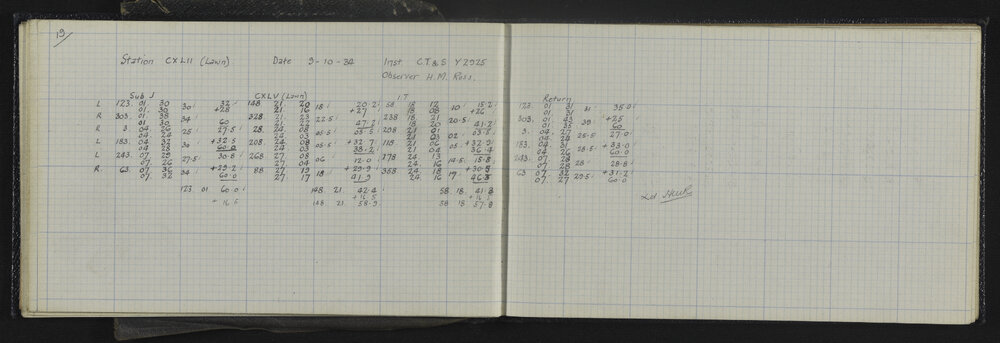 19/
Station CXLII (Lawn) Date 9-10-34 Inst C.T & S Y2925
Observer H.M. Ross.
Sub J CXLV (Lawn) I T Return
L 123. 01 30 30 32 148 21 20 18 20.2 58 18 12 10 15.2 123. 01 31 31 35.0
01 30 +28 21 16 +27 18 08 +26 01 31
R 303. 01 38 34 60 328 21 23 22.5 47.2 238 18 21 20.5 41.2 303. 01 43 39 +25
01 30 21 22 18 20 01 35 60
R 3. 04 26 25 27.5 28. 24 08 05.5 05.5 298 21 01 02 03.5 3. 04 27 25.5 27.0
04 24 24 03 21 03 04 24
L 183. 04 32 30 +32.5 208. 24 08 05.5 +32.7 118 21 06 05 +32.9 183. 04 31 28.5 +33.0
04 28 60.0 24 03 38.2 21 04 36.4 04 26 60.0
L 243. 07 29 27.5 30.8 268 27 08 06 12.0 178 24 13 14.5 15.8 243. 07 28 28 28.8
07 26 27 04 24 16 07 28
R 63. 07 36 34 +29.2 88 27 19 18 +29.9 358 24 18 17 +30.5 63 07 32 29.5 +31.2
07 32 60.0 27 17 41.9 24 16 46.3 07 27 60.0
123 01 60.0 148. 21. 42.4 58. 18. 41.3
+16.5 +16.5 +16.5
148 21. 58.9 58 18 57.8